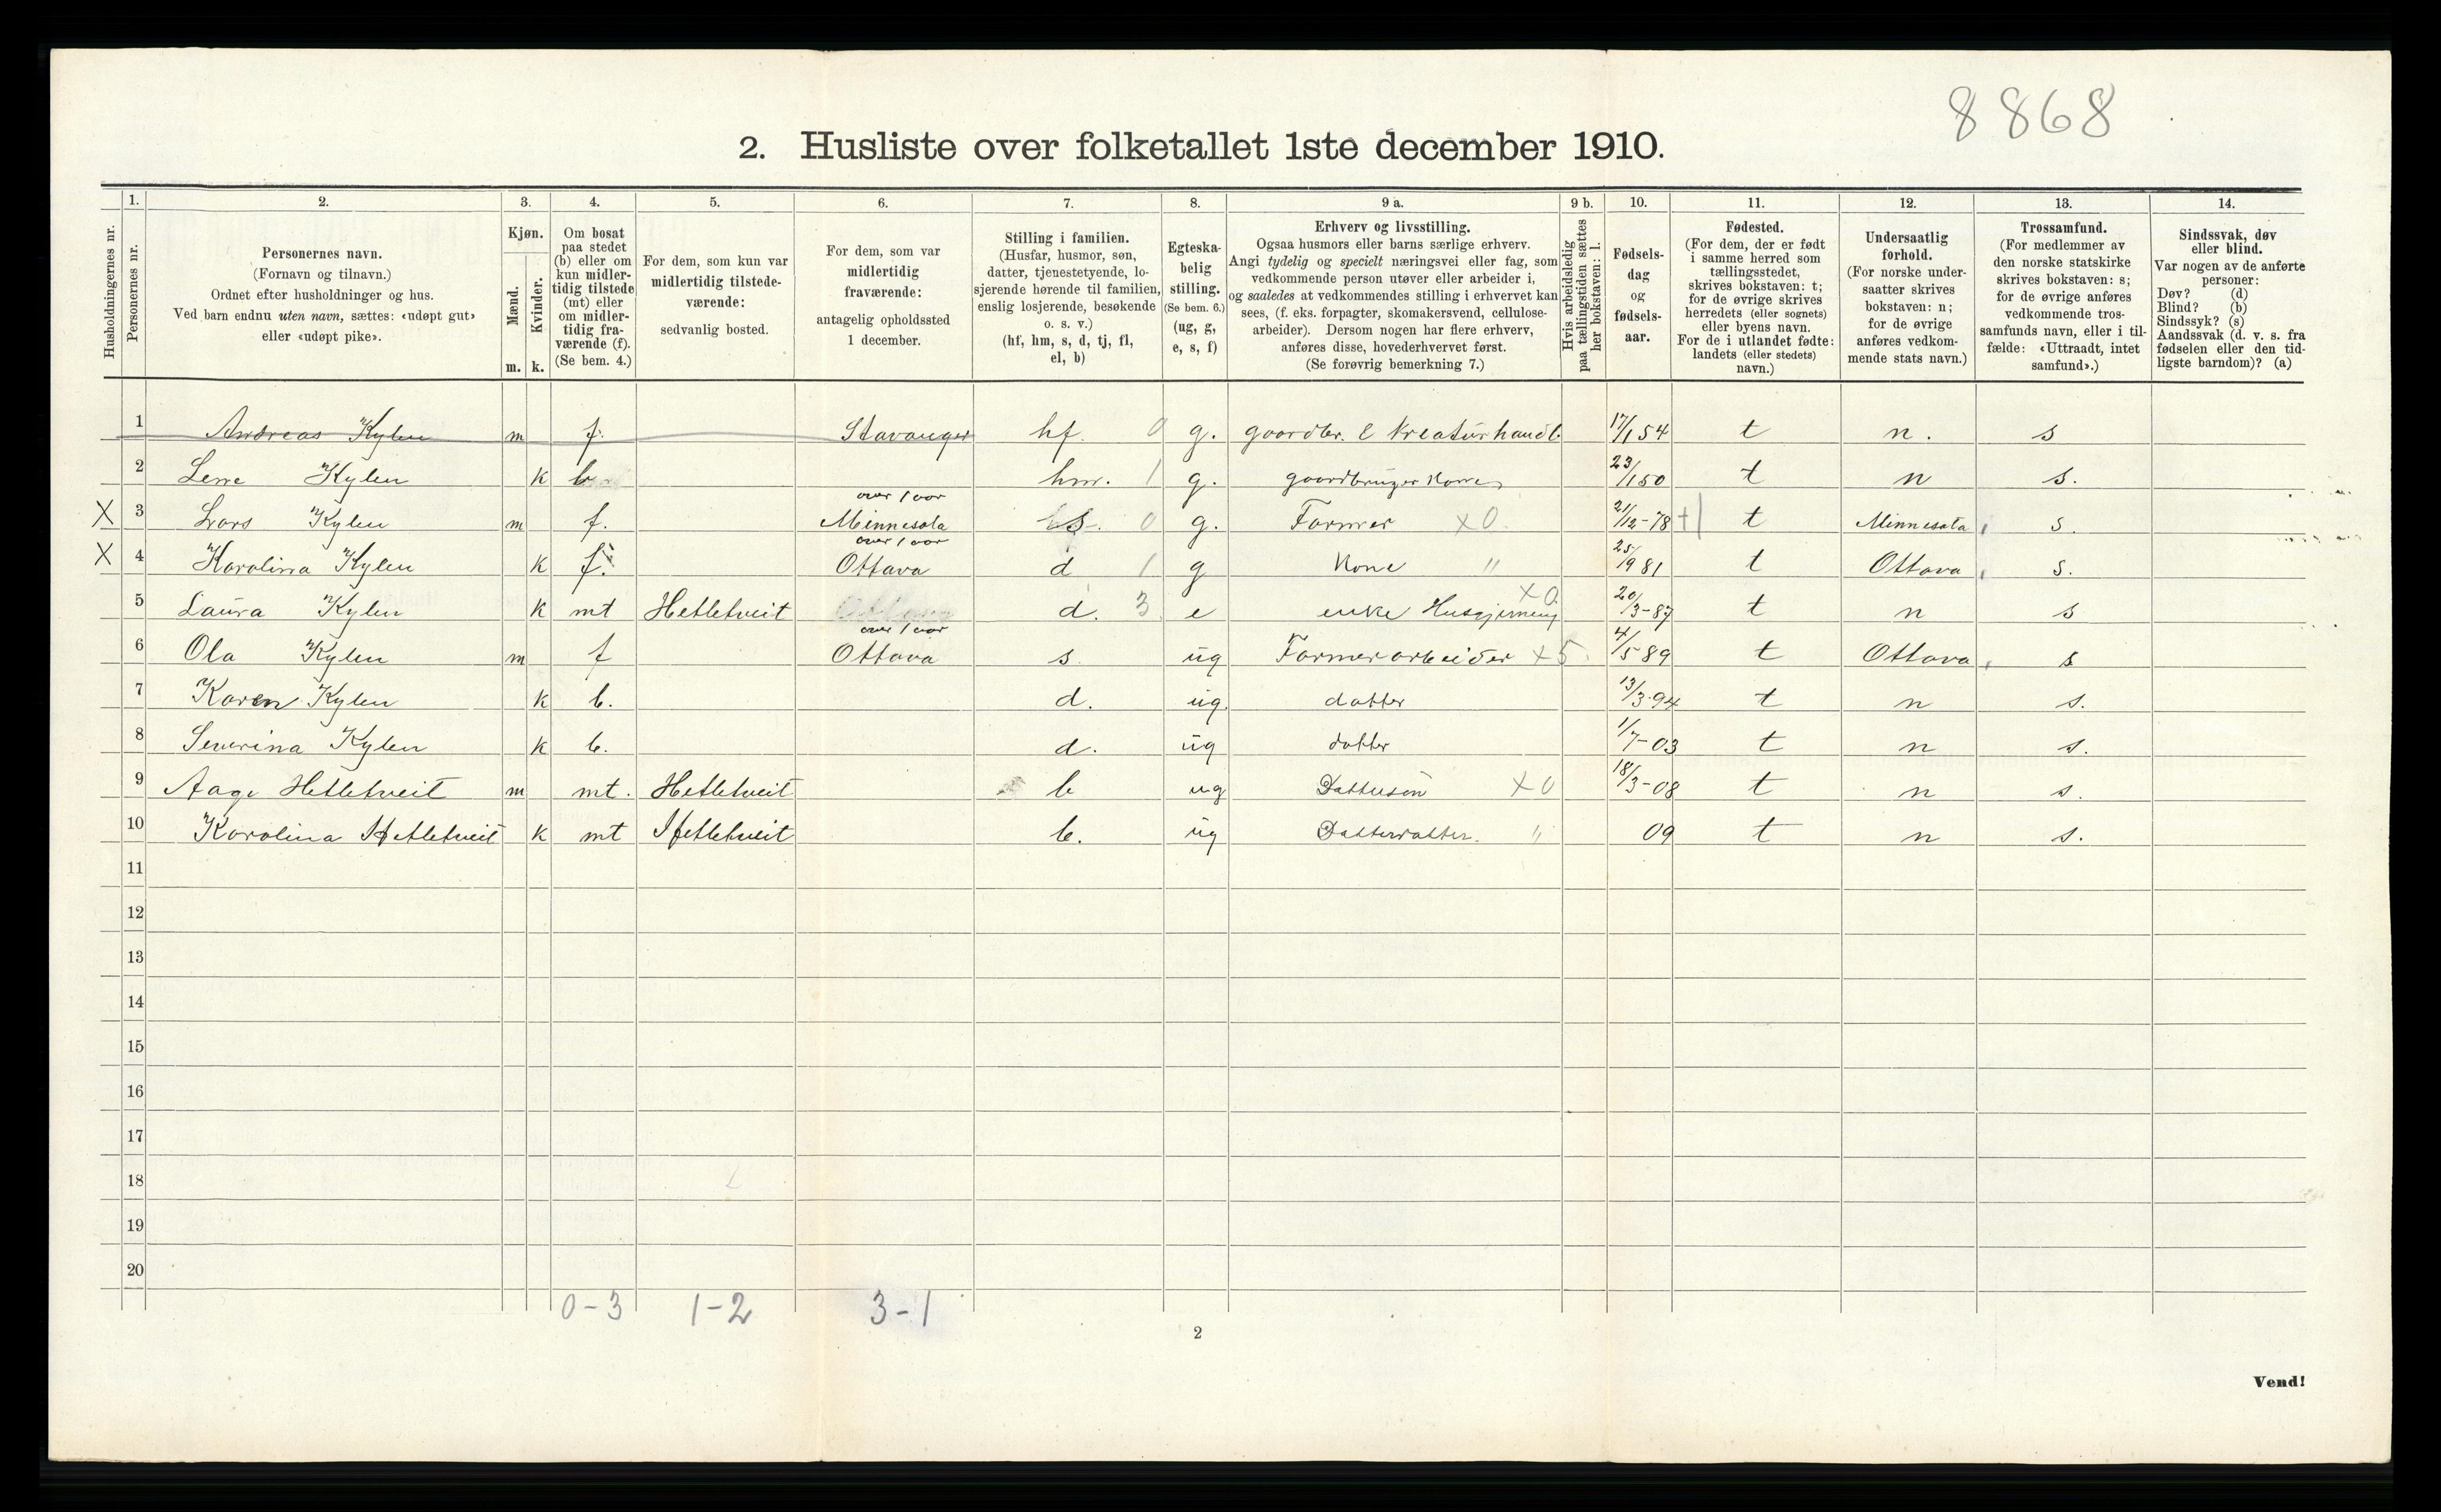 8868
2. Husliste over folketallet 1ste december 1910.
1. 2. 3. 4. 5. 6. 7. 8. 9 a. 9 b. 10. 11. 12. 13. 14.
Husholdningernes nr.
Personernes nr.
Personernes navn.
(Fornavn og tilnavn.)
Ordnet efter husholdninger og hus.
Ved barn endnu uten navn, sættes: «udøpt gut»
eller «udøpt pike».
Kjøn.
Mænd.
Kvinder.
m. k.
Om bosat
paa stedet
(b) eller om
kun midler-
tidig tilstede
(mt) eller
om midler-
tidig fra-
værende (f).
(Se bem. 4.)
For dem, som kun var
midlertidig tilstede-
værende:
sedvanlig bosted.
For dem, som var
midlertidig
fraværende:
antagelig opholdssted
1 december.
Stilling i familien.
(Husfar, husmor, søn,
datter, tjenestetyende, lo-
sjerende hørende til familien,
enslig losjerende, besøkende
o. s. v.)
(hf, hm, s, d, tj, fl,
el, b)
Egteska-
belig
stilling.
(Se bem. 6.)
(ug, g,
e, s, f)
Erhverv og livsstilling.
Ogsaa husmors eller barns særlige erhverv.
Angi tydelig og specielt næringsvei eller fag, som
vedkommende person utøver eller arbeider i,
og saaledes at vedkommendes stilling i erhvervet kan
sees, (f. eks. forpagter, skomakersvend, cellulose-
arbeider). Dersom nogen har flere erhverv,
anføres disse, hovederhvervet først.
(Se forøvrig bemerkning 7.)
Hvis arbeidsledig
paa tællingstiden sættes
her bokstaven: l.
Fødsels-
dag
og
fødsels-
aar.
Fødested.
(For dem, der er født
i samme herred som
tællingsstedet,
skrives bokstaven: t;
for de øvrige skrives
herredets (eller sognets)
eller byens navn.
For de i utlandet fødte:
landets (eller stedets)
navn.)
Undersaatlig
forhold.
(For norske under-
saatter skrives
bokstaven: n;
for de øvrige
anføres vedkom-
mende stats navn.)
Trossamfund.
(For medlemmer av
den norske statskirke
skrives bokstaven: s;
for de øvrige anføres
vedkommende tros-
samfunds navn, eller i til-
fælde: «Uttraadt, intet
samfund».)
Sindssvak, døv
eller blind.
Var nogen av de anførte
personer:
Døv? (d)
Blind? (b)
Sindssyk? (s)
Aandssvak (d. v. s. fra
fødselen eller den tid-
ligste barndom)? (a)
1 Andreas Kylen m f. Stavanger hf. 0 g. gaardbr. & Kreaturhandl. 17/1 54 t n. s
2 Lene Kylen k b hm. 1 g. gaardbruger Kone 23/1 50 t n s.
X 3 Lars Kylen m f. over 1 aar Minnesota s. 0 g. Farmer X0 21/12-78 t Minnesota s.
X 4 Karolina Kylen k f. over 1 aar Ottava d 1 g Kone " 25/9 81 t Ottava s.
5 Laura Kylen k mt Hetletveit d. 3 e enke Husgjerning X0 20/3-87 t n s
6 Ola Kylen m f over 1 aar Ottava s. ug Farmerarbeider X5. 4/5 89 t Ottava s
7 Karen Kylen k b. d. ug. datter 13/3-94 t n s.
8 Severina Kylen k b. d. ug datter 1/7-03 t n s.
9 Aage Hetletveit m mt. Hetletveit b ug Dattersøn X0 18/3-08 t n s.
10 Karolina Hetletveit k mt Hetletveit b. ug Datterdatter. " 09 t n s.
11
12
13
14
15
16
17
18
19
20
0-3 1-2 3-1
2
Vend!